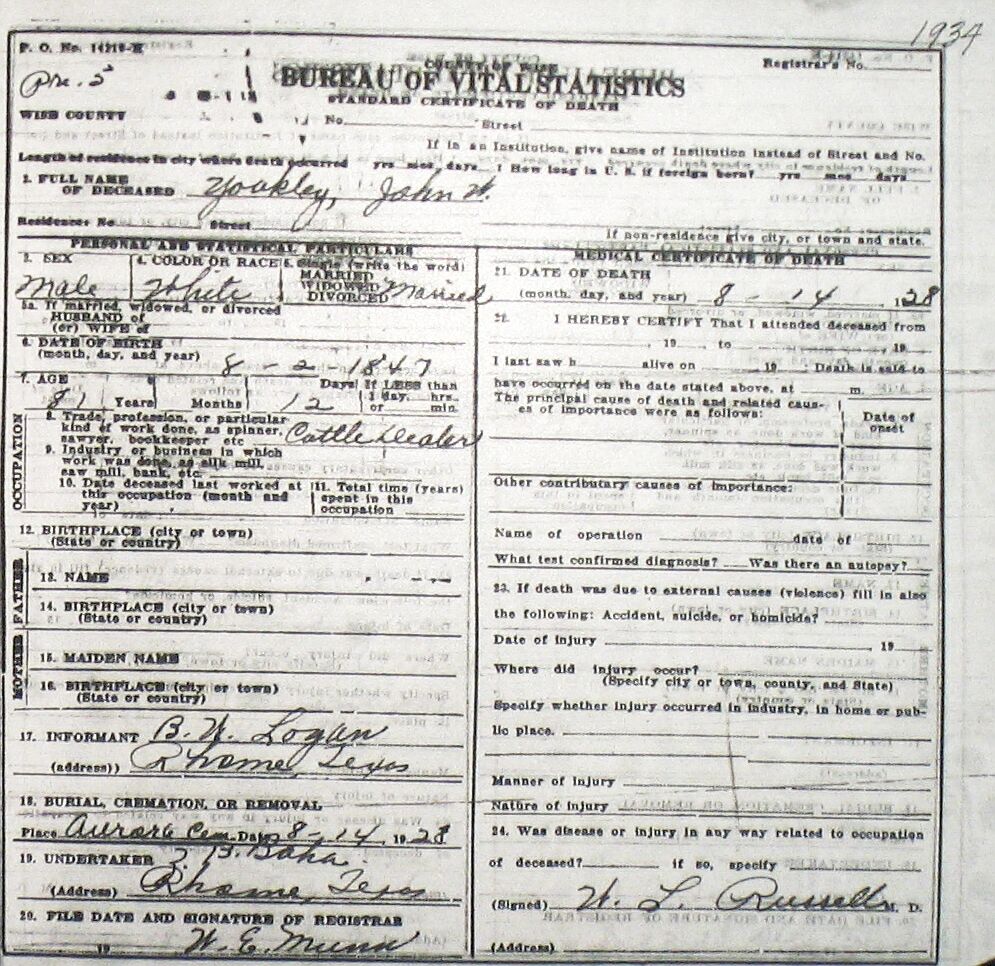 1934
F. O. No. 14210-H
Registrar's No.
Pre. 2
COUNTY OF WISE
BUREAU OF VITAL STATISTICS
STANDARD CERTIFICATE OF DEATH
WISE COUNTY
No. Street
If in an Institution, give name of Institution instead of Street and No.
Length of residence in city where death occurred yrs mos. days. ? How long in U. S. if foreign born? yrs mos days
1. FULL NAME OF DECEASED Yoakley, John W.
Residence: No Street
If non-residence give city, or town and state.
PERSONAL AND STATISTICAL PARTICULARS
3. SEX Male
4. COLOR OR RACE White
5. Single (write the word) MARRIED WIDOWED DIVORCED Married
5a. If married, widowed, or divorced
HUSBAND of
(or) WIFE of
6. DATE OF BIRTH
(month, day, and year) 8-2-1847
7. AGE 81 Years Months 12 Days If LESS than 1 day, hrs. or min.
OCCUPATION
8. Trade, profession, or particular
kind of work done, as spinner,
sawyer, bookkeeper etc Cattle Dealer
9. Industry or business in which
work was done, as silk mill,
saw mill, bank, etc.
10. Date deceased last worked at
this occupation (month and
year)
11. Total time (years)
spent in this
occupation
12. BIRTHPLACE (city or town)
(State or country)
FATHER
13. NAME
14. BIRTHPLACE (city or town)
(State or country)
MOTHER
15. MAIDEN NAME
16. BIRTHPLACE (city or town)
(State or country)
17. INFORMANT B. W. Logan
(address)) Rhome, Texas
18. BURIAL, CREMATION, OR REMOVAL
Place Aurora Cem. Date 8-14 1928
19. UNDERTAKER
(Address) Rhome, Texas
20. FILE DATE AND SIGNATURE OF REGISTRAR
19 W. E. Munn
MEDICAL CERTIFICATE OF DEATH
21. DATE OF DEATH
(month, day, and year) 8-14 1928
22. I HEREBY CERTIFY That I attended deceased from
, 19 to , 19
I last saw h alive on 19 . Death is said to
have occurred on the date stated above, at m.
The principal cause of death and related caus-
es of importance were as follows:
Date of
onset
Other contributary causes of importance:
Name of operation date of
What test confirmed diagnosis? Was there an autopsy?
23. If death was due to external causes (violence) fill in also
the following: Accident, suicide, or homicide?
Date of injury , 19
Where did injury occur?
(Specify city or town, county, and State)
Specify whether injury occurred in industry, in home or pub-
lic place.
Manner of injury
Nature of injury
24. Was disease or injury in any way related to occupation
of deceased? if so, specify
(Signed) W. L. Russell M. D.
(Address)